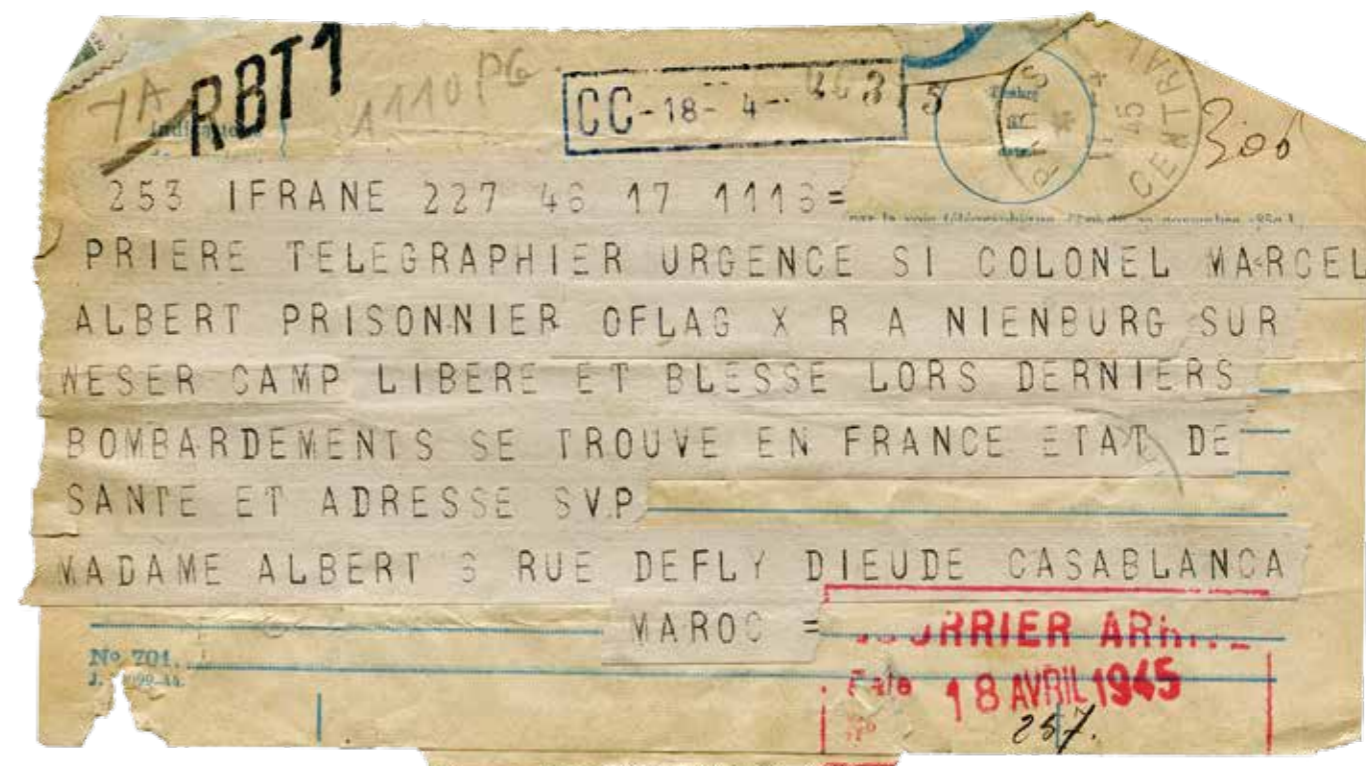 RBT1
1110 PG
CC-18- 4-
PARIS CENTRAL
45
300
253 IFRANE 227 46 17 1116=
PRIERE TELEGRAPHIER URGENCE SI COLONEL MARCEL
ALBERT PRISONNIER OFLAG X R A NIENBURG SUR
WESER CAMP LIBERE ET BLESSE LORS DERNIERS
BOMBARDEMENTS SE TROUVE EN FRANCE ETAT DE
SANTE ET ADRESSE SVP
MADAME ALBERT 6 RUE DEFLY DIEUDE CASABLANCA
MAROC =
COURRIER ARRIVE
No 701.
Date 18 AVRIL 1945
257.